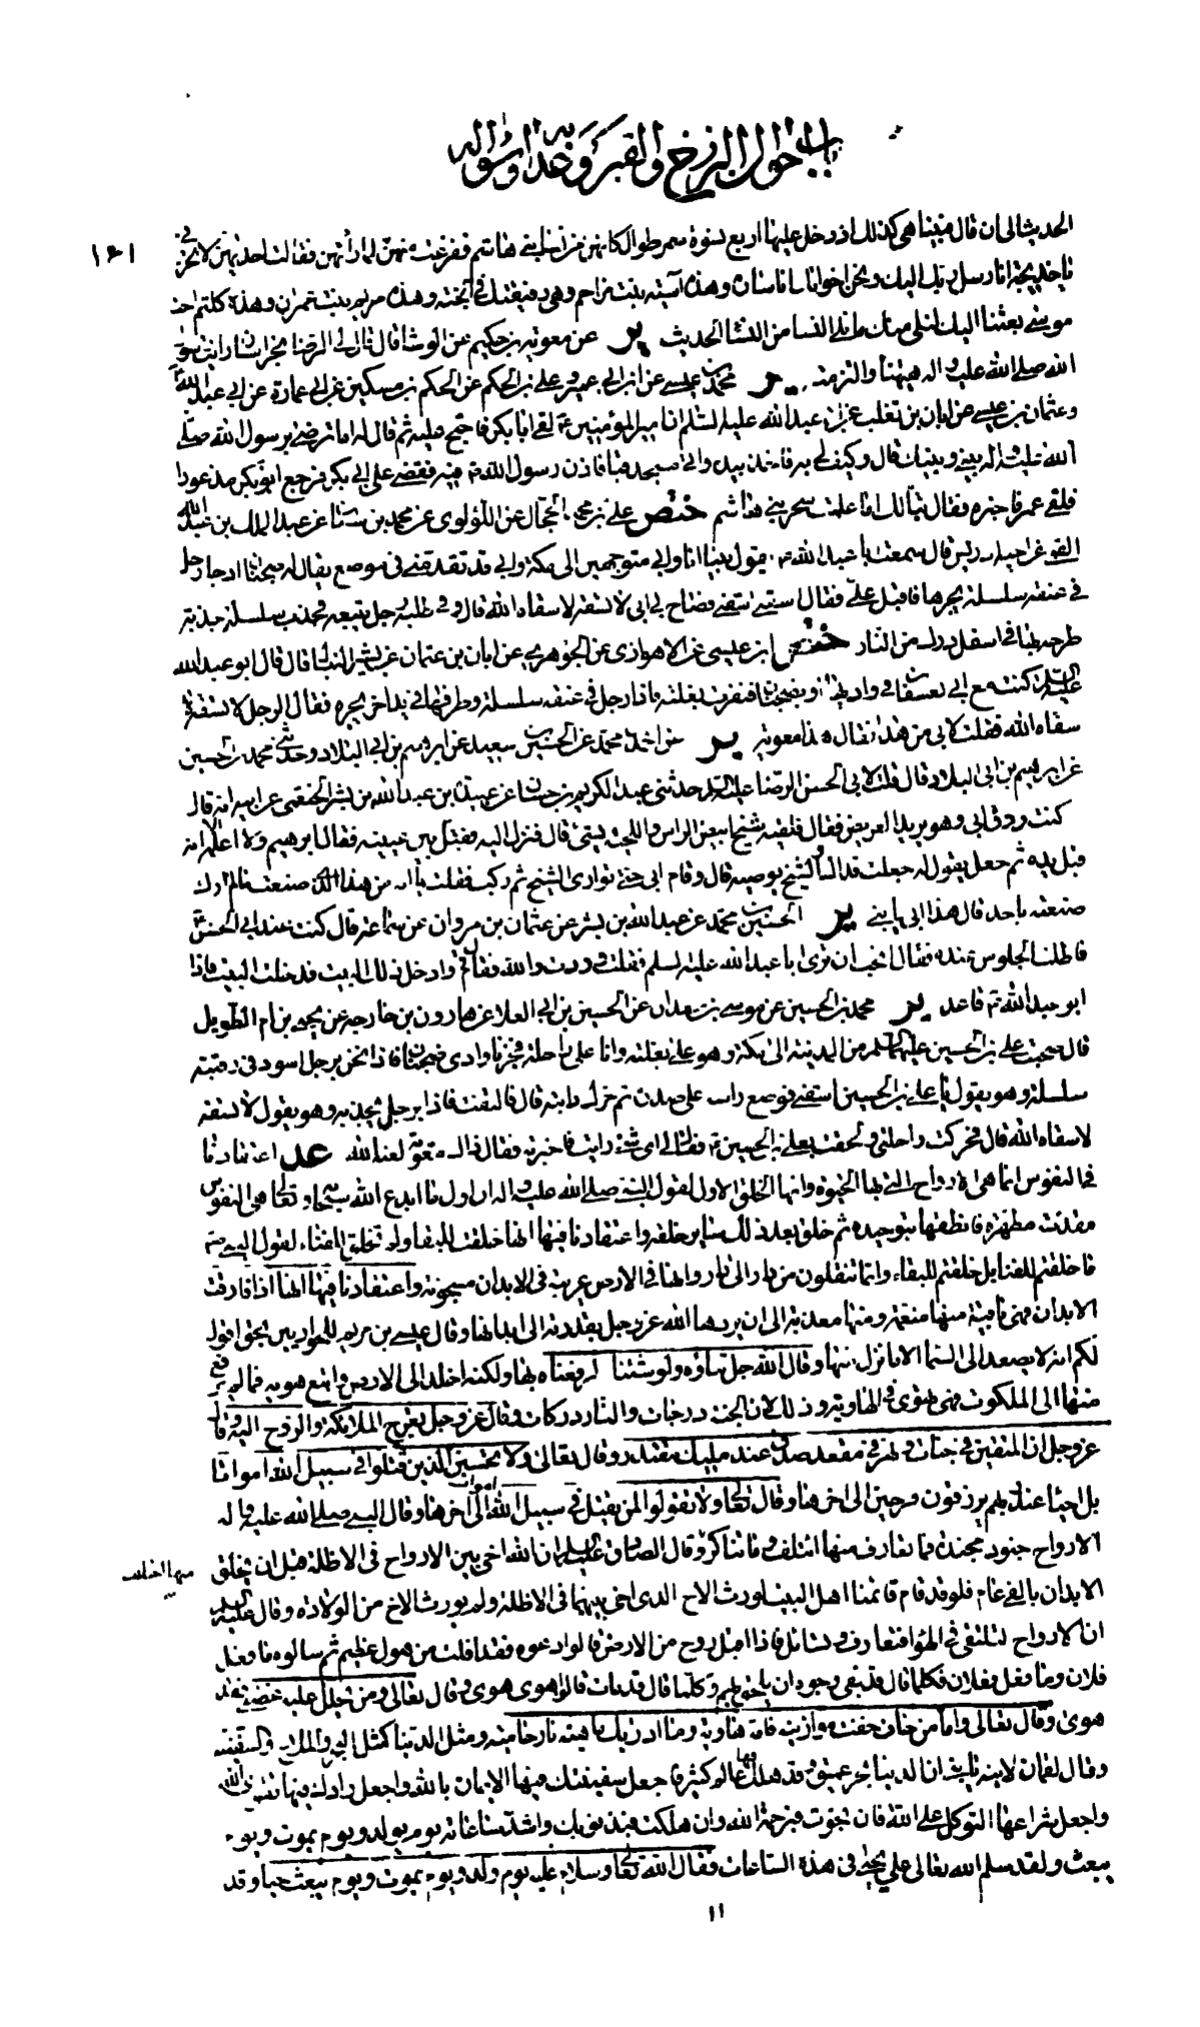 باب احوال البرزخ والقبر وعذابه وسؤاله
١٤١
الحديث الى ان قال فبينا هي كذلك اذ دخل عليها اربع نسوة سمر طوال كانهن من نساء بني هاشم ففزعت منهن لما رأتهن فقالت احديهن لا تحزني
يا خديجة انا رسل ربك اليك ونحن اخواتك انا سارة وهذه آسية بنت مزاحم وهي رفيقتك في الجنة وهذه مريم بنت عمران وهذه كلثم اخت
موسى بعثنا الله اليك لنلي منك ما تلي النساء من النساء الحديث ير عن معوية بن حكيم عن الوشا قال قال لي الرضا بخراسان رايت رسول
الله صلى الله عليه واله ههنا والتزمته ير محمد بن عيسى عن ابن ابي عمير و علي بن الحكم عن الحكم بن مسكين عن ابي عمارة عن ابي عبد الله
وعثمان بن عيسى عن ابان بن تغلب عن ابي عبد الله عليه السلم ان امير المؤمنين ع لقى ابا بكر فاحتج عليه ثم قال له اما ترضى برسول الله صلى
الله عليه واله بيني وبينك قال وكيف لي به فاخذ بيده واتى مسجد قبا فاذن رسول الله ص فيه فقضى على ابي بكر فرجع ابو بكر مذعورا
فلقى عمر فاخبره فقال تبا لك اما علمت سحر بني هاشم ختص علي بن محمد الحجال عن اللؤلوي عن محمد بن سنان عن عبد الملك بن عبد الله
القمي عن اخيه ادريس قال سمعت ابا عبد الله ع يقول بينا انا وابي متوجهين الى مكة وابي قد تقدمني في موضع يقال له ضجنان اذ جاء رجل
في عنقه سلسلة يجرها فاقبل علي فقال اسقني اسقني فصاح بي ابي لا تسقه لا سقاه الله قال وفي طلبه رجل يتبعه فجذب سلسلة جذبة
طرحه بها في اسفل درك من النار ختص ابن عيسى عن الاهوازي عن الجوهري عن ابان بن عثمان عن بشير النبال قال قال ابو عبد الله
عليه السلم كنت مع ابي بعسفان في واد بها او بضجنان فنفرت بغلته فاذا رجل في عنقه سلسلة وطرفها في يد اخر يجره فقال الرجل لا تسقه
سقاه الله فقلت لابي من هذا فقال هذا معوية ير عن احمد بن محمد عن الحسين بن سعيد عن ابرهيم بن ابي البلاد وحدثني محمد بن الحسين
عن ابرهيم بن ابي البلاد قال قلت لابي الحسن الرضا عليه السلم حدثني عبد الكريم بن حسان عن عبيدة بن عبد الله بن بشر الخثعمي عن ابيه انه قال
كنت ردف ابي وهو يريد العريض قال فلقيه شيخ ابيض الراس واللحية يمشي قال فنزل اليه فقبل بين عينيه فقال ابرهيم ولا اعلمه الا انه
قبل يده ثم جعل يقول له جعلت فداك والشيخ يوصيه قال وقام ابي حتى توارى الشيخ ثم ركب فقلت يا ابه من هذا الذي صنعت به ما لم ارك
صنعته باحد قال هذا ابي يا بني ير الحسين بن محمد عن عبد الله بن بشر عن عثمان بن مروان عن سماعة قال كنت عند ابي الحسن ع
فاطلت الجلوس عنده فقال اتحب ان ترى ابا عبد الله عليه السلم فقلت وددت والله فقال قم وادخل ذلك البيت فدخلت البيت فاذا
ابو عبد الله ع قاعد ير محمد بن الحسين عن موسى بن سعدان عن الحسين بن ابي العلا عن هارون بن خارجة عن يحيى بن ام الطويل
قال صحبت علي بن الحسين عليهما السلم من المدينة الى مكة وهو على بغلته وانا على راحلة فجزنا وادي ضجنان فاذا نحن برجل اسود في رقبته
سلسلة وهو يقول يا علي بن الحسين اسقني فوضع راسه على صدره ثم حرك دابته قال فالتفت فاذا برجل يجذبه وهو يقول لا تسقه
لا سقاه الله قال فحركت راحلتي ولحقت بعلي بن الحسين ع فقال لي اي شيء رايت فاخبرته فقال ذاك معوية لعنه الله عد اعتقادنا
في النفوس انها هي الارواح التي بها الحيوة وانها الخلق الاول لقول النبي صلى الله عليه واله ان اول ما ابدع الله سبحانه وتعالى هي النفوس
مقدسة مطهرة فانطقها بتوحيده ثم خلق بعد ذلك ساير خلقه واعتقادنا فيها انها خلقت للبقاء ولم تخلق للفناء لقول النبي ص
ما خلقتم للفنا بل خلقتم للبقاء وانما تنقلون من دار الى دار وانها في الارض غريبة في الابدان مسجونة واعتقادنا فيها انها اذا فارقت
الابدان فهي باقية منها منعمة ومنها معذبة الى ان يردها الله عز وجل بقدرته الى ابدانها وقال عيسى بن مريم للحواريين بحق اقول
لكم انه لا يصعد الى السماء الا ما نزل منها وقال الله جل ثناؤه ولو شئنا لرفعناه بها ولكنه اخلد الى الارض واتبع هويه فما لم ترفع
منها الى الملكوت فهي تهوى في الهاوية وذلك لان الجنة درجات والنار دركات وقال عز وجل تعرج الملئكة والروح اليه وقال
عز وجل ان المتقين في جنات ونهر في مقعد صدق عند مليك مقتدر وقال تعالى ولا تحسبن الذين قتلوا في سبيل الله امواتا
بل احياء عند ربهم يرزقون فرحين الى اخرها وقال تعالى ولا تقولوا لمن يقتل في سبيل الله اموات الى آخرها وقال النبي صلى الله عليه واله
الارواح جنود مجندة فما تعارف منها ائتلف وما تناكر منها اختلف وقال الصادق عليه السلم ان الله اخى بين الارواح في الاظلة قبل ان يخلق
الابدان بالفي عام فلو قد قام قائمنا اهل البيت لورث الاخ الذي اخى بينهما في الاظلة ولم يورث الاخ من الولادة وقال عليه السلم
ان الارواح لتلتقي في الهواء فتعارف وتسائل فاذا اقبل روح من الارض قالوا دعوه فقد افلت من هول عظيم ثم سالوه ما فعل
فلان وما فعل فلان فكلما قال قد بقي رجوه ان يلحق بهم وكلما قال قد مات قالوا هوى هوى وقال تعالى ومن يحلل عليه غضبي فقد
هوى وقال تعالى واما من خفت موازينه فامه هاوية وما ادريك ماهيه نار حامية ومثل الدنيا كمثل البحر والملاح والسفينة
وقال لقمان لابنه يا بني ان الدنيا بحر عميق وقد هلك فيها عالم كثير فاجعل سفينتك فيها الايمان بالله واجعل زادك فيها تقوى الله
واجعل شراعها التوكل على الله فان نجوت فبرحمة الله وان هلكت فبذنوبك واشد ساعاته يوم يولد ويوم يموت ويوم
يبعث ولقد سلم الله تعالى على يحيى في هذه الساعات فقال الله تعالى وسلام عليه يوم ولد ويوم يموت ويوم يبعث حيا وقد
١١